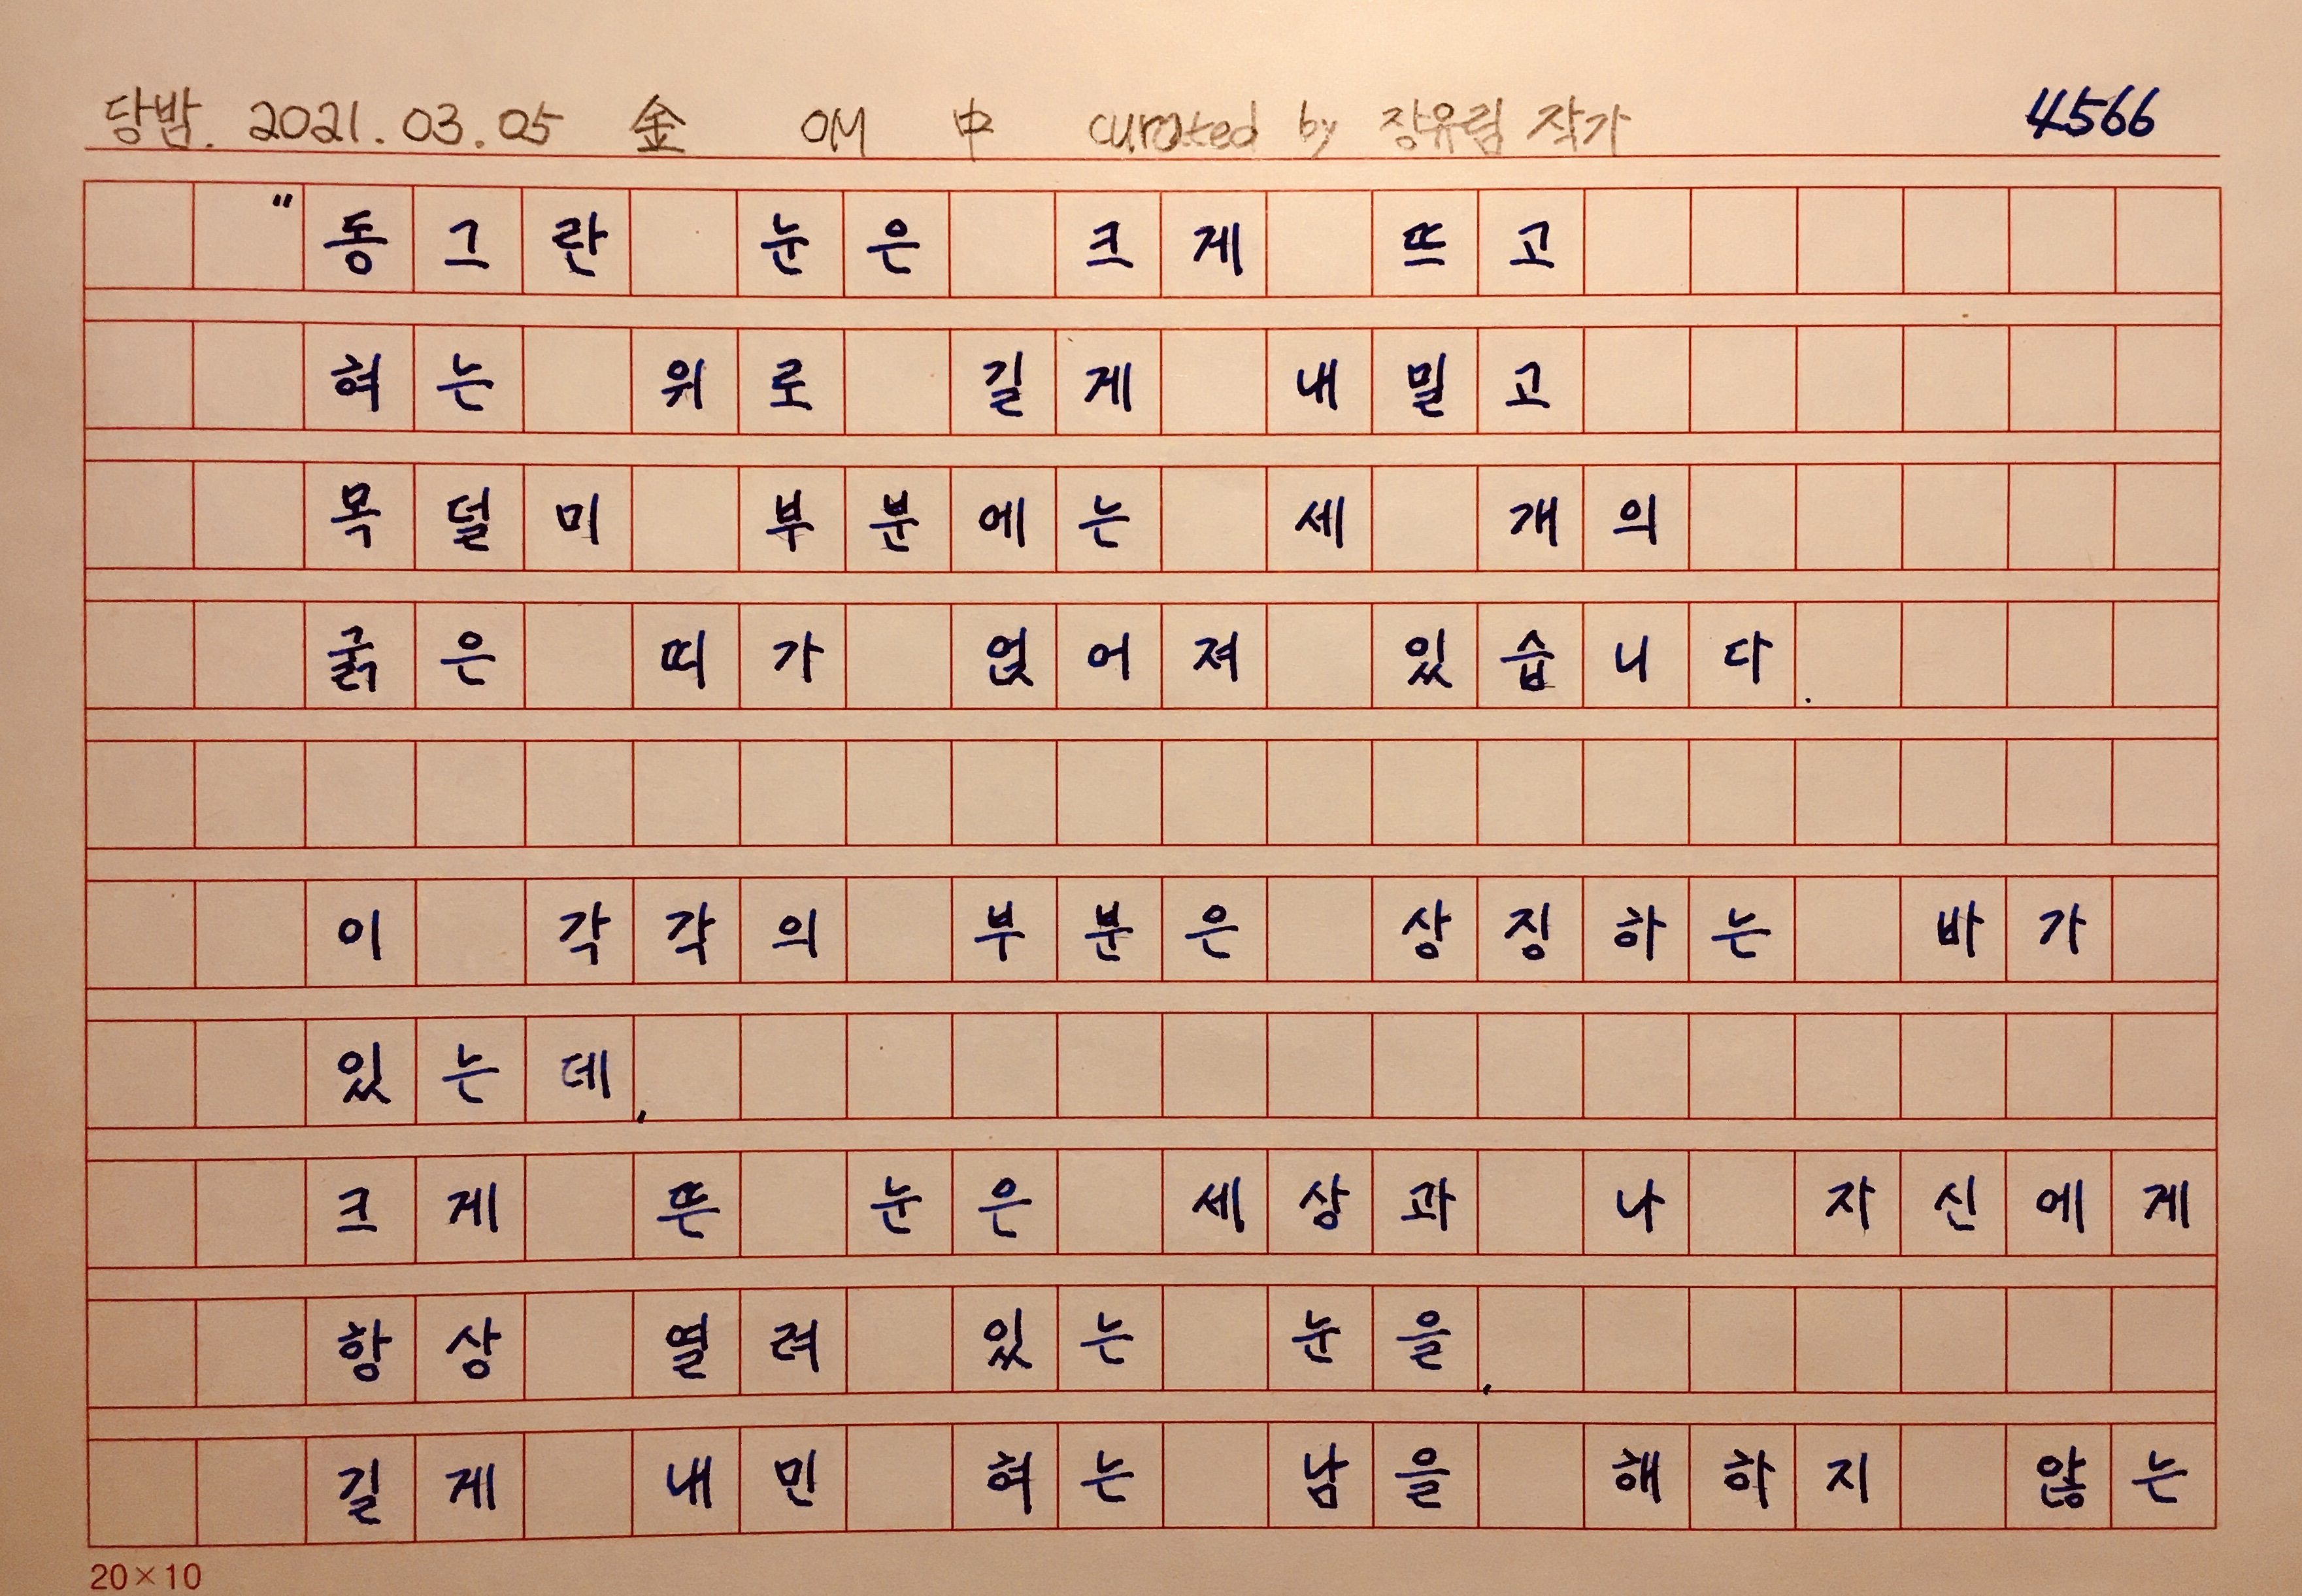 당밤. 2021.03.05 金 OM 中 curated by 장유림 작가 4566
"동그란 눈은 크게 뜨고
혀는 위로 길게 내밀고
목덜미 부분에는 세 개의
굵은 띠가 얹어져 있습니다.
이 각각의 부분은 상징하는 바가
있는데,
크게 뜬 눈은 세상과 나 자신에게
항상 열려 있는 눈을,
길게 내민 혀는 남을 해하지 않는
20×10